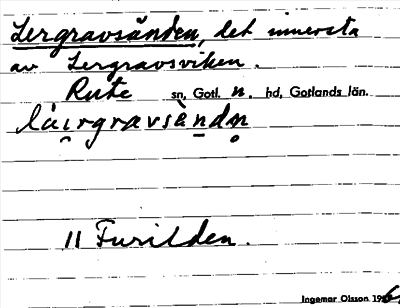 Lergravsänden, det innersta
av Lergravsviken.
Rute sn, Gotl. n. hd, Gotlands län.
lài̯rgravsὰn̠dn̥
11 Furilden.
Ingemar Olsson 19